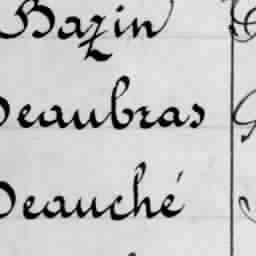 Bazin
Beaubras
Beauché